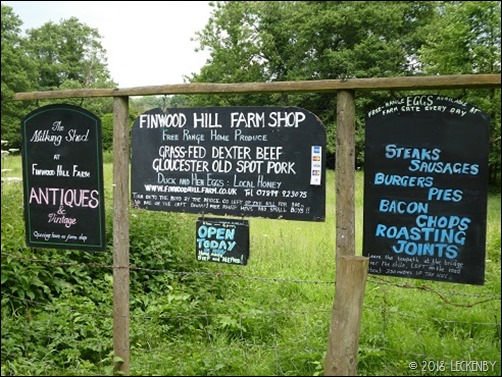 The
Milking Shed
AT
FINWOOD HILL FARM
ANTIQUES
&
Vintage
FINWOOD HILL FARM SHOP
FREE RANGE HOME PRODUCE
GRASS-FED DEXTER BEEF
GLOUCESTER OLD SPOT PORK
DUCK AND HEN EGGS : LOCAL HONEY
WWW.FINWOODHILLFARM.CO.UK TEL 07899 923075
OPEN
TODAY
FREE RANGE EGGS AVAILABLE AT
FARM GATE EVERY DAY
STEAKS
SAUSAGES
BURGERS
PIES
BACON
CHOPS
ROASTING
JOINTS
© 2016 LECKENBY